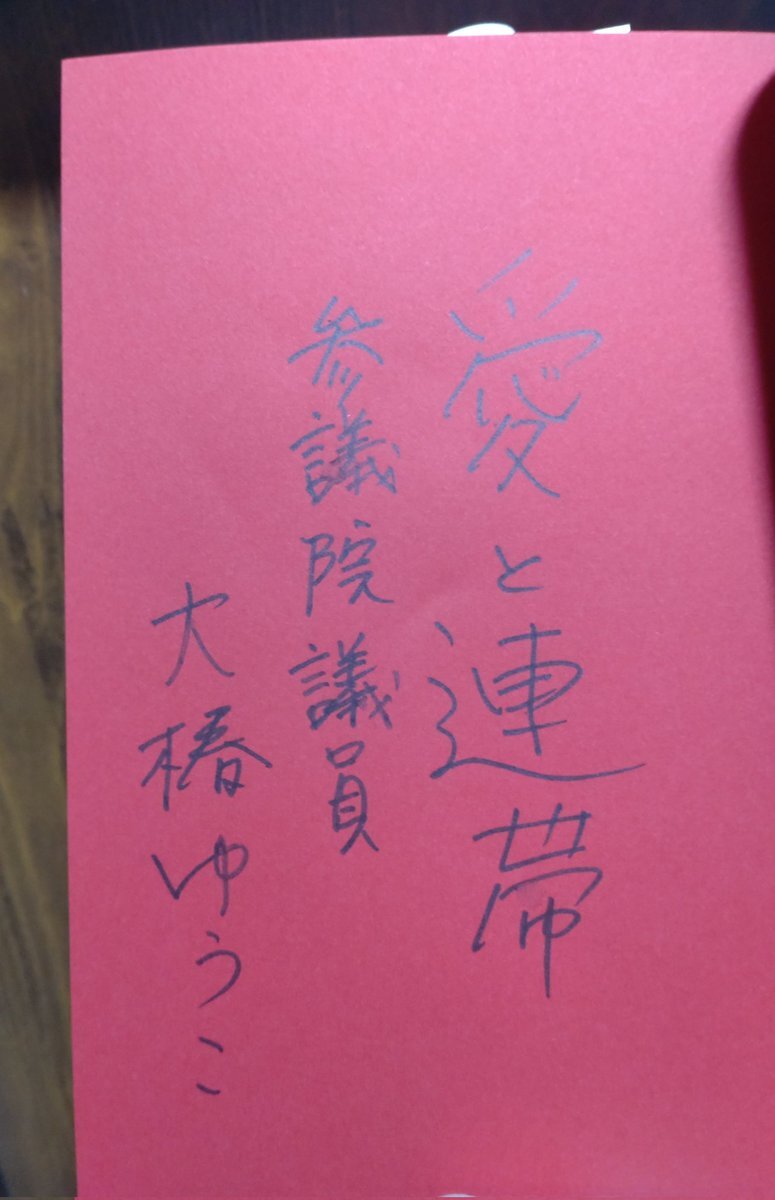 愛と連帯
参議院議員
大椿ゆうこ